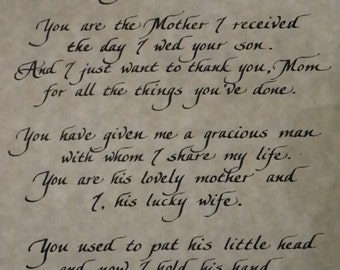 You are the Mother I received
the day I wed your son.
And I just want to thank you, Mom
for all the things you've done.
You have given me a gracious man
with whom I share my life.
You are his lovely mother and
I, his lucky wife.
You used to pat his little head
and now I hold his hand